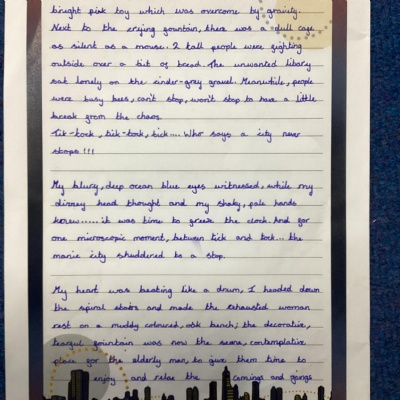 bright pink toy which was overcome by gravity.
Next to the crying fountain, there was a dull cafe
as silent as a mouse. 2 tall people were fighting
outside over a bit of bread. The unwanted libary
sat lonely on the cinder-grey gravel. Meanwhile, people
were busy bees, can't stop, won't stop to have a little
break from the chaos.
Tik-tock, tick-tock, tick.... Who says a city never
stops!!!
My blury, deep ocean blue eyes witnessed, while my
dizzey head thought and my shaky, pale hands
knew..... it was time to freeze the clock. And for
one microscopic moment, between tick and tock... the
manic city shuddered to a stop.
My heart was beating like a drum, I headed down
the spiral stairs and made the exhausted woman
rest on a muddy coloured, oak bench; the decorative,
tearful fountain was now the serene, contemplative
place for the elderly men, to give them time to
enjoy and relax the comings and goings